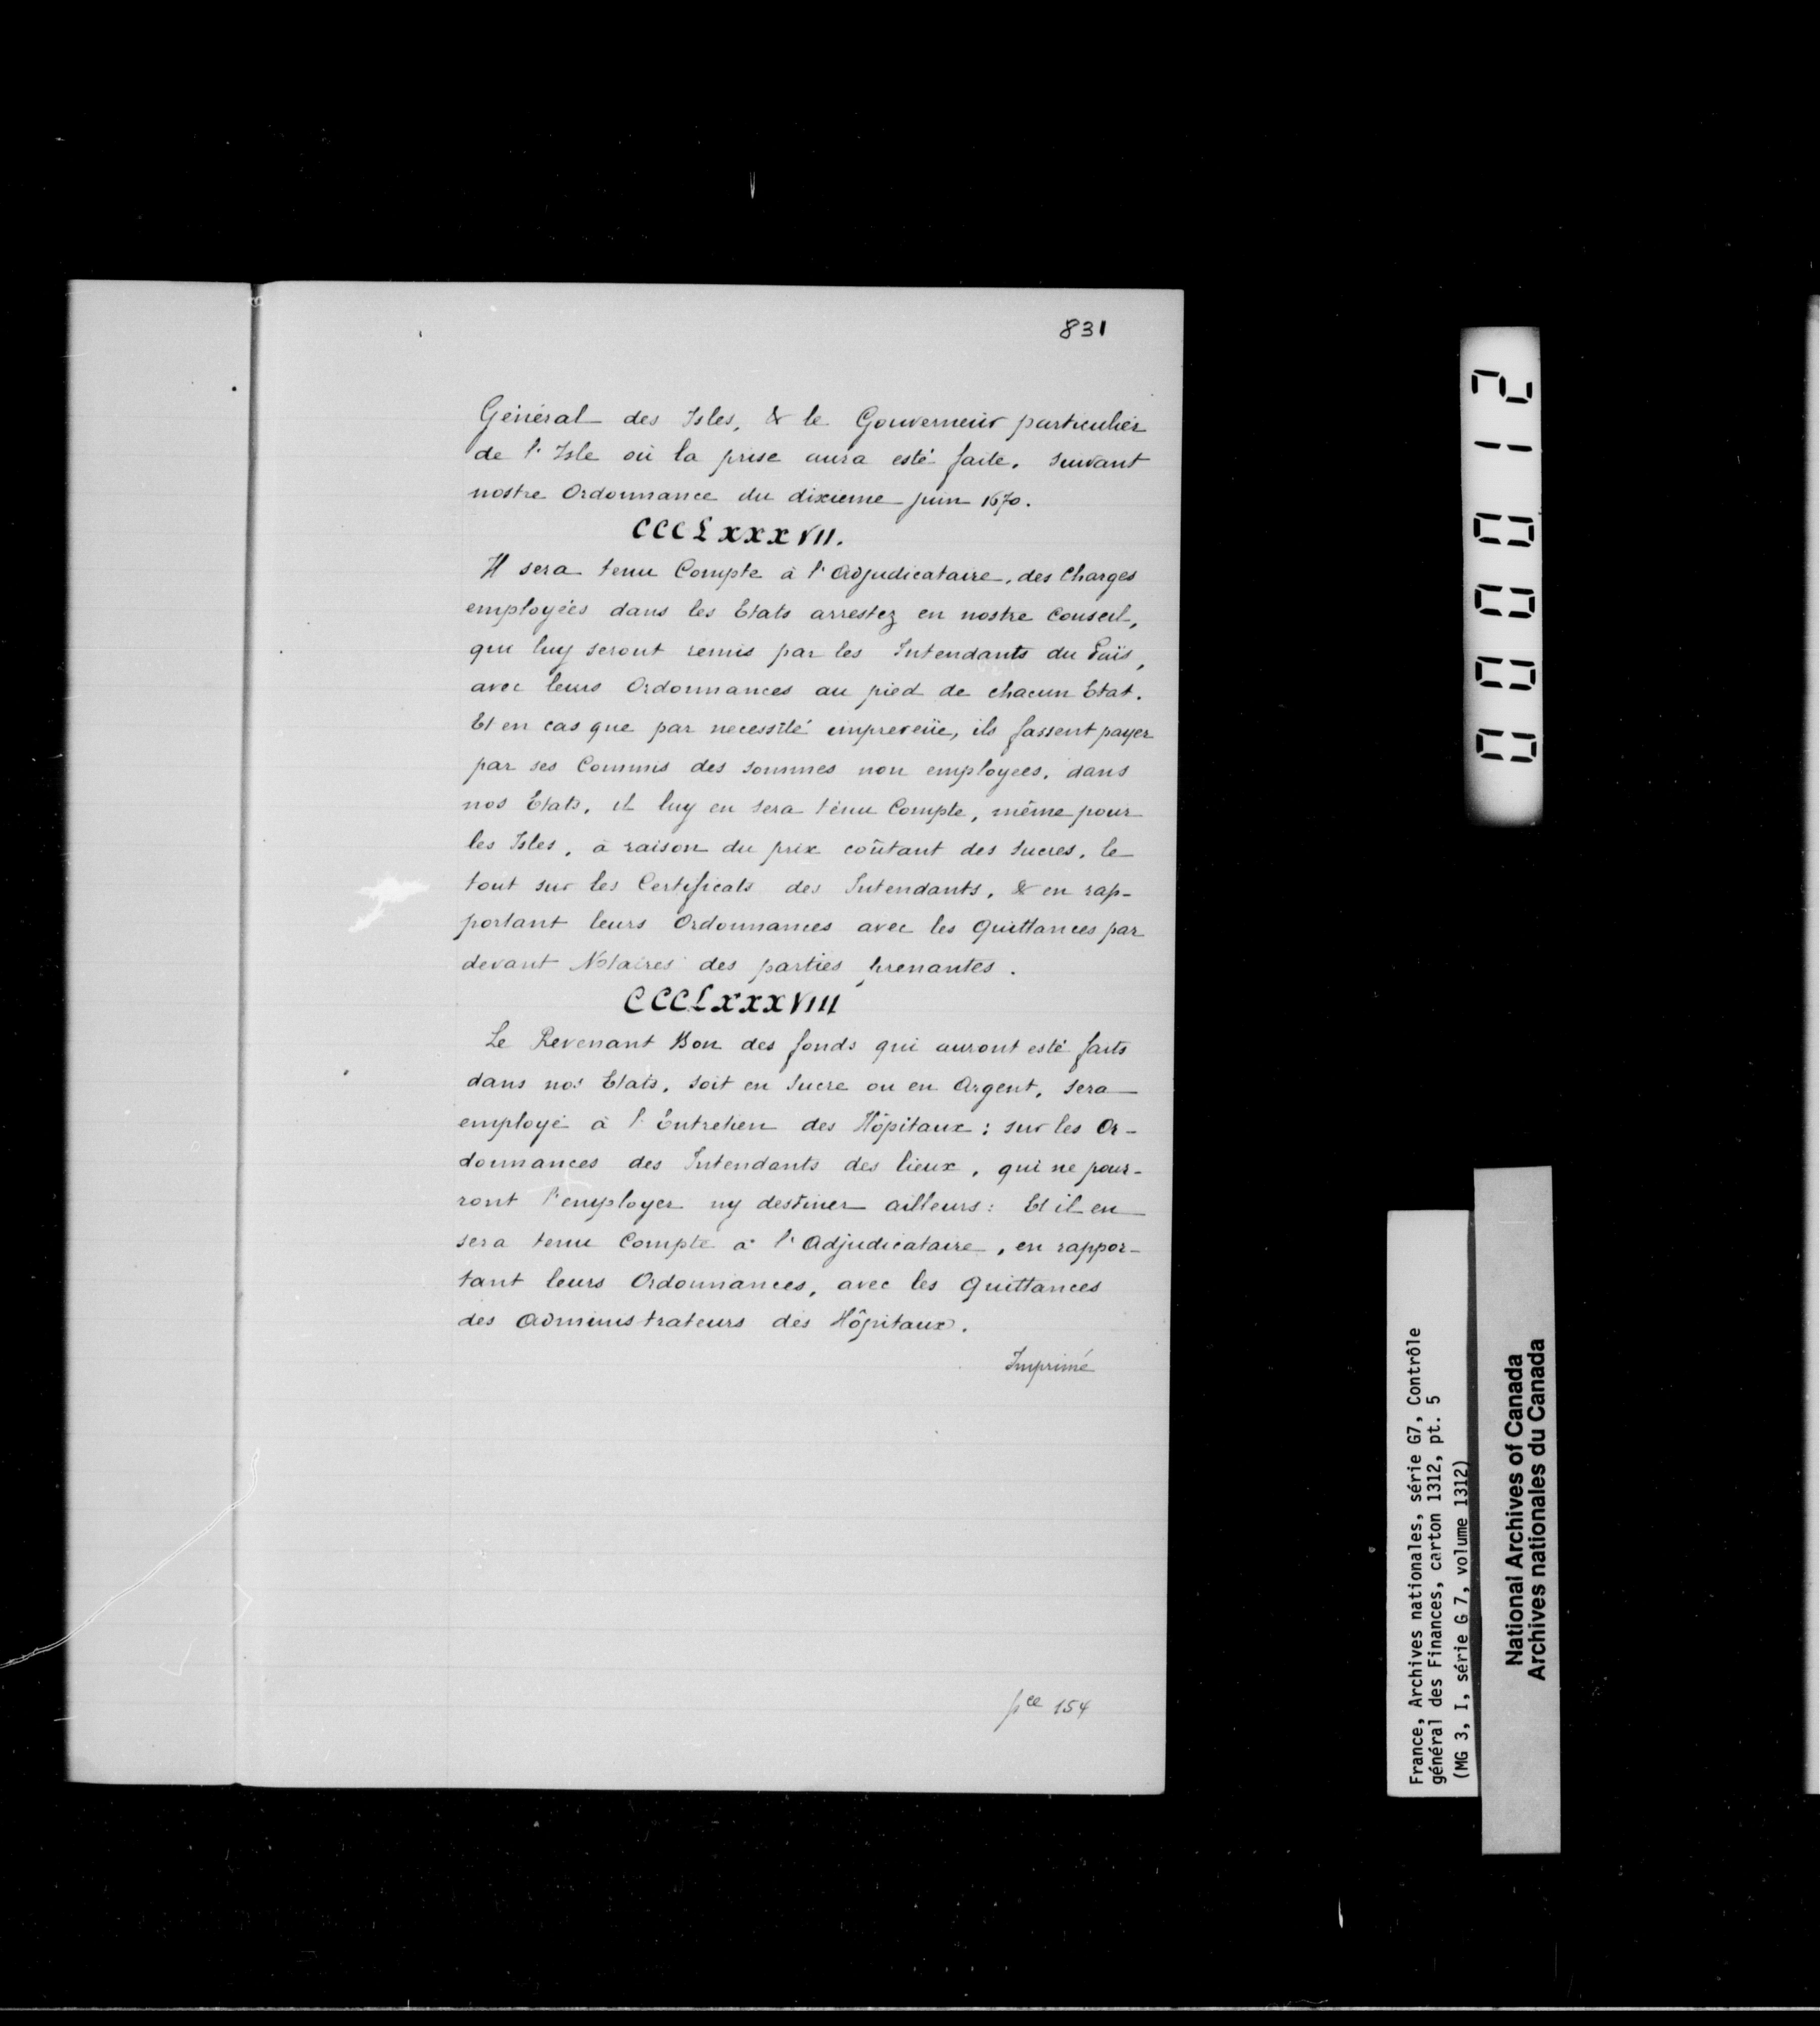 831
Général des Isles, & le Gouverneur particulier
de l'Isle où la prise aura esté faite, suivant
nostre Ordonnance du dixieme juin 1670.
CCCLxxxVII.
Il sera tenu Compte à l'Adjudicataire, des Charges
employées dans les Etats arrestez en nostre Conseil,
qui luy seront remis par les Intendants du Païs,
avec leurs Ordonnances au pied de chacun Etat.
Et en cas que par necessité impreveüe, ils fassent payer
par ses Commis des sommes non employees, dans
nos Etats, il luy en sera tenu Compte, même pour
les Isles, à raison du prix coûtant des sucres, le
tout sur les Certificats des Intendants, & en rap-
portant leurs Ordonnances avec les Quittances par
devant Notaires des parties prenantes.
CCCLxxxVIII
Le Revenant Bon des fonds qui auront esté faits
dans nos Etats, soit en Sucre ou en Argent, sera
employé à l'Entretien des Hôpitaux : sur les Or-
donnances des Intendants des lieux, qui ne pour-
ront l'employer ny destiner ailleurs : Et il en
sera tenu Compte à l'Adjudicataire, en rappor-
tant leurs Ordonnances, avec les Quittances
des Administrateurs des Hôpitaux.
Imprimé
pce 154
000012
France, Archives nationales, série G7, Contrôle
général des Finances, carton 1312, pt. 5
(MG 3, I, série G 7, volume 1312)
National Archives of Canada
Archives nationales du Canada